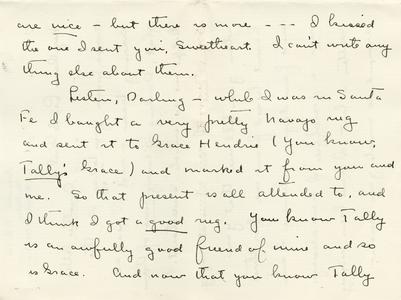 are nice - but there is more - - - I kissed
the one I sent you, Sweetheart. I can't write any
thing else about them.
Listen, Darling - while I was in Santa
Fe I bought a very pretty Navajo rug
and sent it to Grace Hendrie (You know,
Tally's Grace) and marked it from you and
me. So that present is all attended to, and
I think I got a good rug. You know Tally
is an awfully good friend of mine and so
is Grace. And now that you know Tally